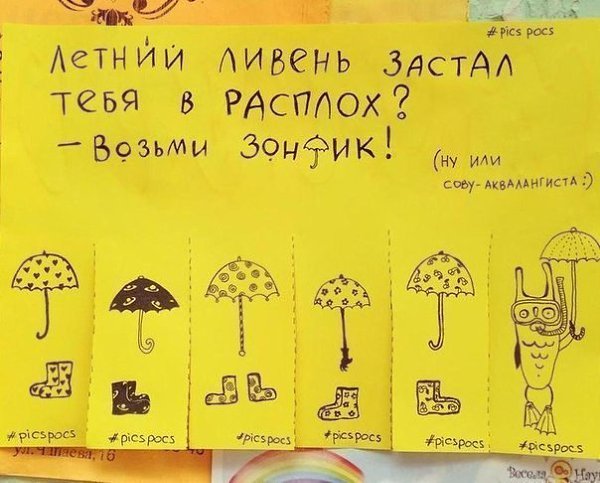 # pics pocs
Летний ливень застал
тебя в расплох?
- Возьми зонтик!
(ну или
сову-аквалангиста:)
#picspocs
#picspocs
#picspocs
#picspocs
#picspocs
#picspocs
ул. Чапаева, 16
Весела Нау